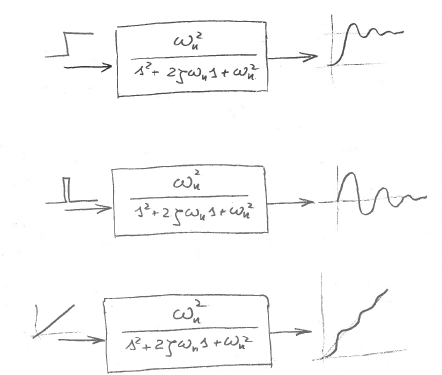 ωₙ²
s² + 2ζωₙs + ωₙ²
ωₙ²
s² + 2ζωₙs + ωₙ²
ωₙ²
s² + 2ζωₙs + ωₙ²